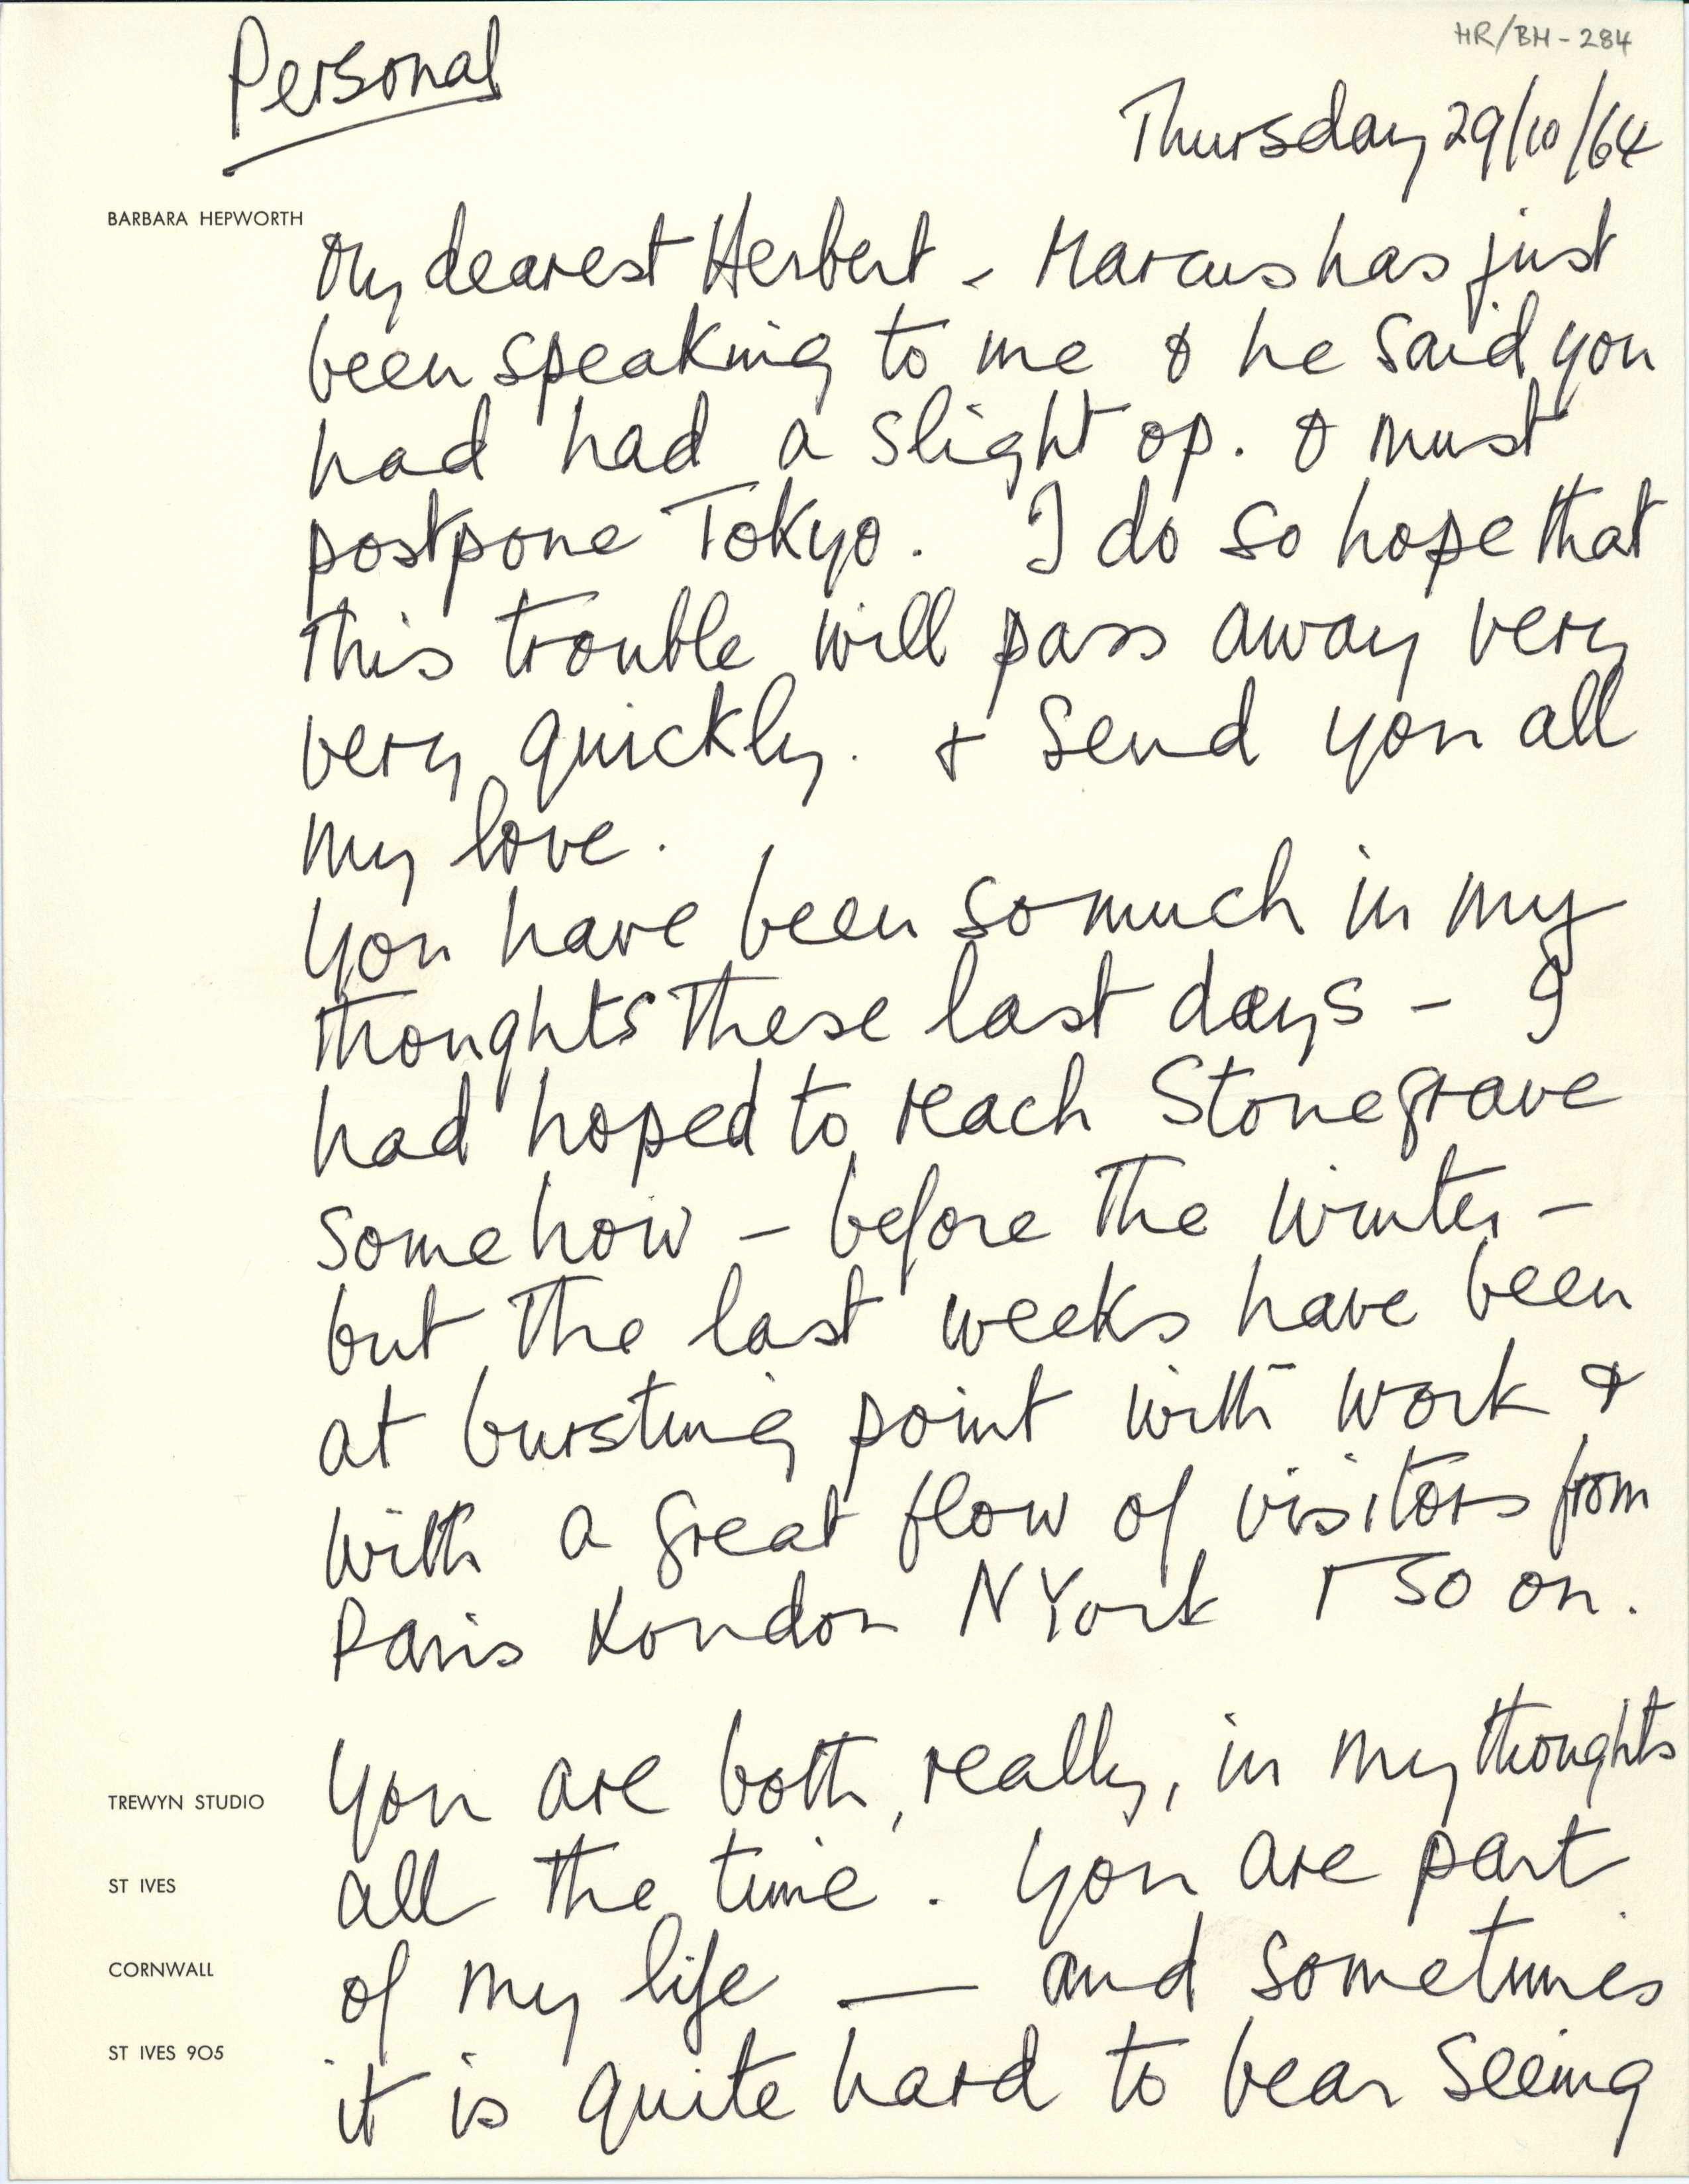 HR/BH-284
Personal
Thursday 29/10/64
BARBARA HEPWORTH
My dearest Herbert - Marcus has just
been speaking to me & he said you
had had a slight op. & must
postpone Tokyo. I do so hope that
this trouble will pass away very
very quickly. & send you all
my love.
You have been so much in my
thoughts these last days - I
had hoped to reach Stonegrave
somehow - before the winter -
but the last weeks have been
at bursting point with work &
with a great flow of visitors from
Paris London N York & so on.
You are both, really, in my thoughts
TREWYN STUDIO
all the time. You are part
ST IVES
of my life — and sometimes
CORNWALL
it is quite hard to bear seeing
ST IVES 905